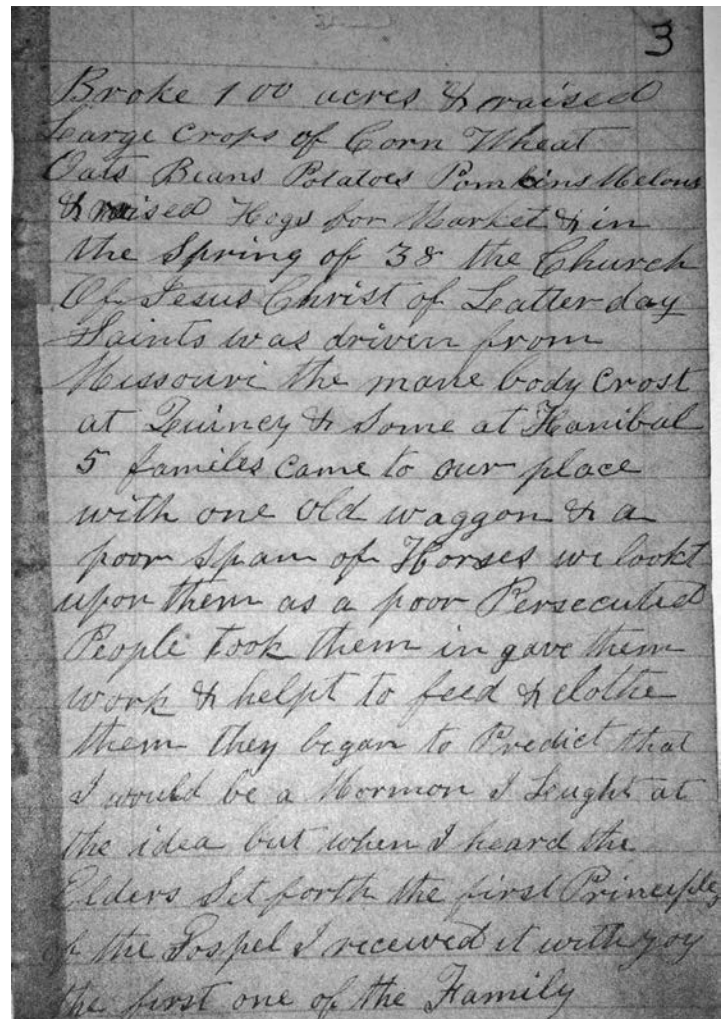 3
Broke 100 acres & raised
Large Crops of Corn Wheat
Oats Beans Potatoes Pomkins Melons
& raised Hogs for Market & in
the Spring of 38 the Church
Of Jesus Christ of Latter day
Saints was driven from
Missouri the mane body Crost
at Quincy & Some at Hanibal
5 familes came to our place
with one old waggon & a
poor Span of Horses we lookt
upon them as a poor Persecuted
People took them in gave them
work & helpt to feed & clothe
them they began to Predict that
I would be a Mormon I Leught at
the idea but when I heard the
Elders Set forth the first Principles
of the Gospel I received it with joy
the first one of the Family